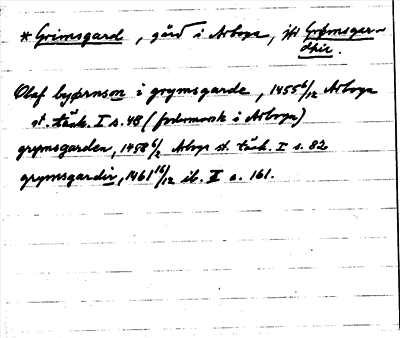 * Grimsgard, gård i Arboga, jfr Grømsgar-
dhir.
Olaf byørnson i grymsgarde, 1455 6/12 Arboga
st. tänk. I s. 48 (fodermarsk i Arboga)
grymsgarden, 1458 6/2 Arboga st. tänk. I s. 82
grymsgardin, 1461 16/12 ib. I s. 161.